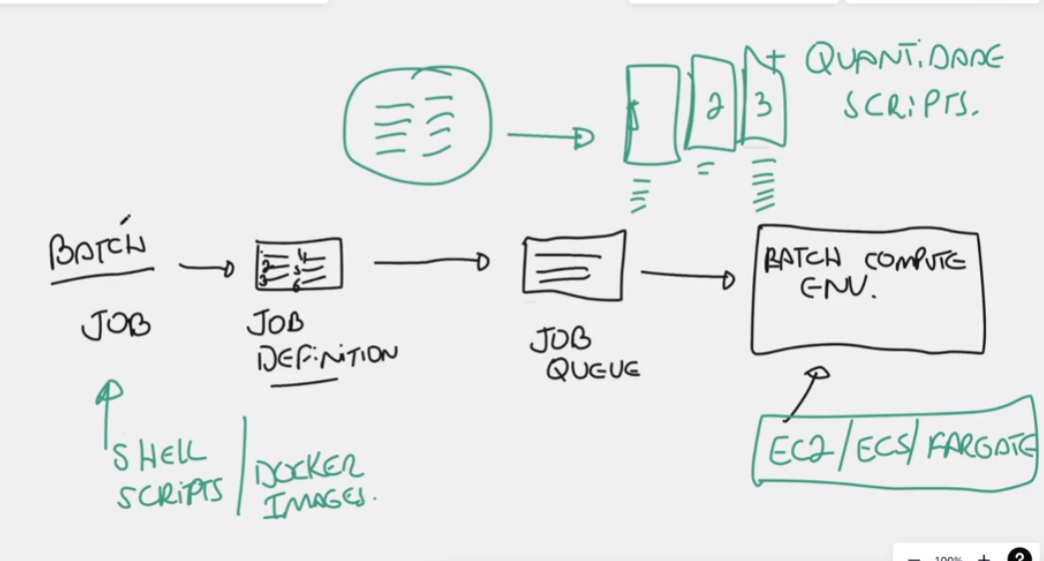 QUANTIDADE
SCRIPTS.
1 2 3
BATCH
JOB
1 2 3 4 5 6
JOB
DEFINITION
JOB
QUEUE
BATCH COMPUTE
ENV.
SHELL
SCRIPTS
DOCKER
IMAGES.
EC2/ECS/FARGATE
− 100% + ?